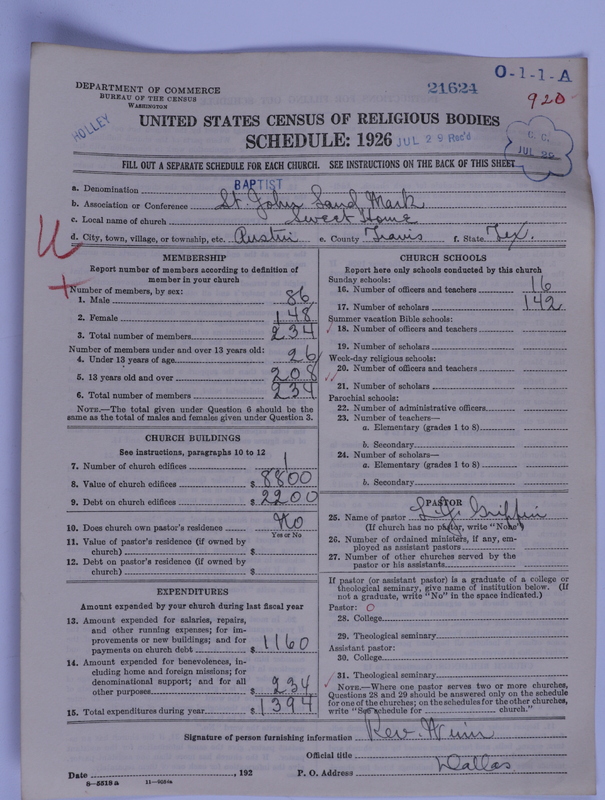 DEPARTMENT OF COMMERCE
BUREAU OF THE CENSUS
WASHINGTON
21624
O-1-1-A
920
HOLLEY
UNITED STATES CENSUS OF RELIGIOUS BODIES
SCHEDULE: 1926
JUL 29 Rec'd
C. C.
JUL 29
FILL OUT A SEPARATE SCHEDULE FOR EACH CHURCH. SEE INSTRUCTIONS ON THE BACK OF THIS SHEET
a. Denomination BAPTIST
b. Association or Conference St. John Land Mark
c. Local name of church Sweet Home
d. City, town, village, or township, etc. Austin e. County Travis f. State Tex.
MEMBERSHIP
Report number of members according to definition of
member in your church
Number of members, by sex:
1. Male 86
2. Female 148
3. Total number of members 234
Number of members under and over 13 years old:
4. Under 13 years of age 26
5. 13 years old and over 208
6. Total number of members 234
NOTE.—The total given under Question 6 should be
same as the total of males and females given under Question 3.
CHURCH BUILDINGS
See instructions, paragraphs 10 to 12
7. Number of church edifices 1
8. Value of church edifices $ 8800
9. Debt on church edifices $ 2200
10. Does church own pastor's residence No
Yes or No
11. Value of pastor's residence (if owned by
church) $
12. Debt on pastor's residence (if owned by
church) $
EXPENDITURES
Amount expended by your church during last fiscal year
13. Amount expended for salaries, repairs,
and other running expenses; for im-
provements or new buildings; and for
payments on church debt $ 1160
14. Amount expended for benevolences, in-
cluding home and foreign missions; for
denominational support; and for all
other purposes $ 234
15. Total expenditures during year $ 1394
CHURCH SCHOOLS
Report here only schools conducted by this church
Sunday schools:
16. Number of officers and teachers 16
17. Number of scholars 142
Summer vacation Bible schools:
18. Number of officers and teachers
19. Number of scholars
Week-day religious schools:
20. Number of officers and teachers
21. Number of scholars
Parochial schools:
22. Number of administrative officers
23. Number of teachers—
a. Elementary (grades 1 to 8)
b. Secondary
24. Number of scholars—
a. Elementary (grades 1 to 8)
b. Secondary
PASTOR
25. Name of pastor L. J. Griffin
(If church has no pastor, write "None")
26. Number of ordained ministers, if any, em-
ployed as assistant pastors
27. Number of other churches served by the
pastor or his assistants
If pastor (or assistant pastor) is a graduate of a college or
theological seminary, give name of institution below. (If
not a graduate, write "No" in the space indicated.)
Pastor: O
28. College
29. Theological seminary
Assistant pastor:
30. College
31. Theological seminary
NOTE.—Where one pastor serves two or more churches,
Questions 28 and 29 should be answered only on the schedule
for one of the churches; on the schedules for the other churches,
write "See schedule for church."
Signature of person furnishing information Rev. Winn
Official title
Date , 192
P. O. Address Dallas
8—5518a 11—9056a